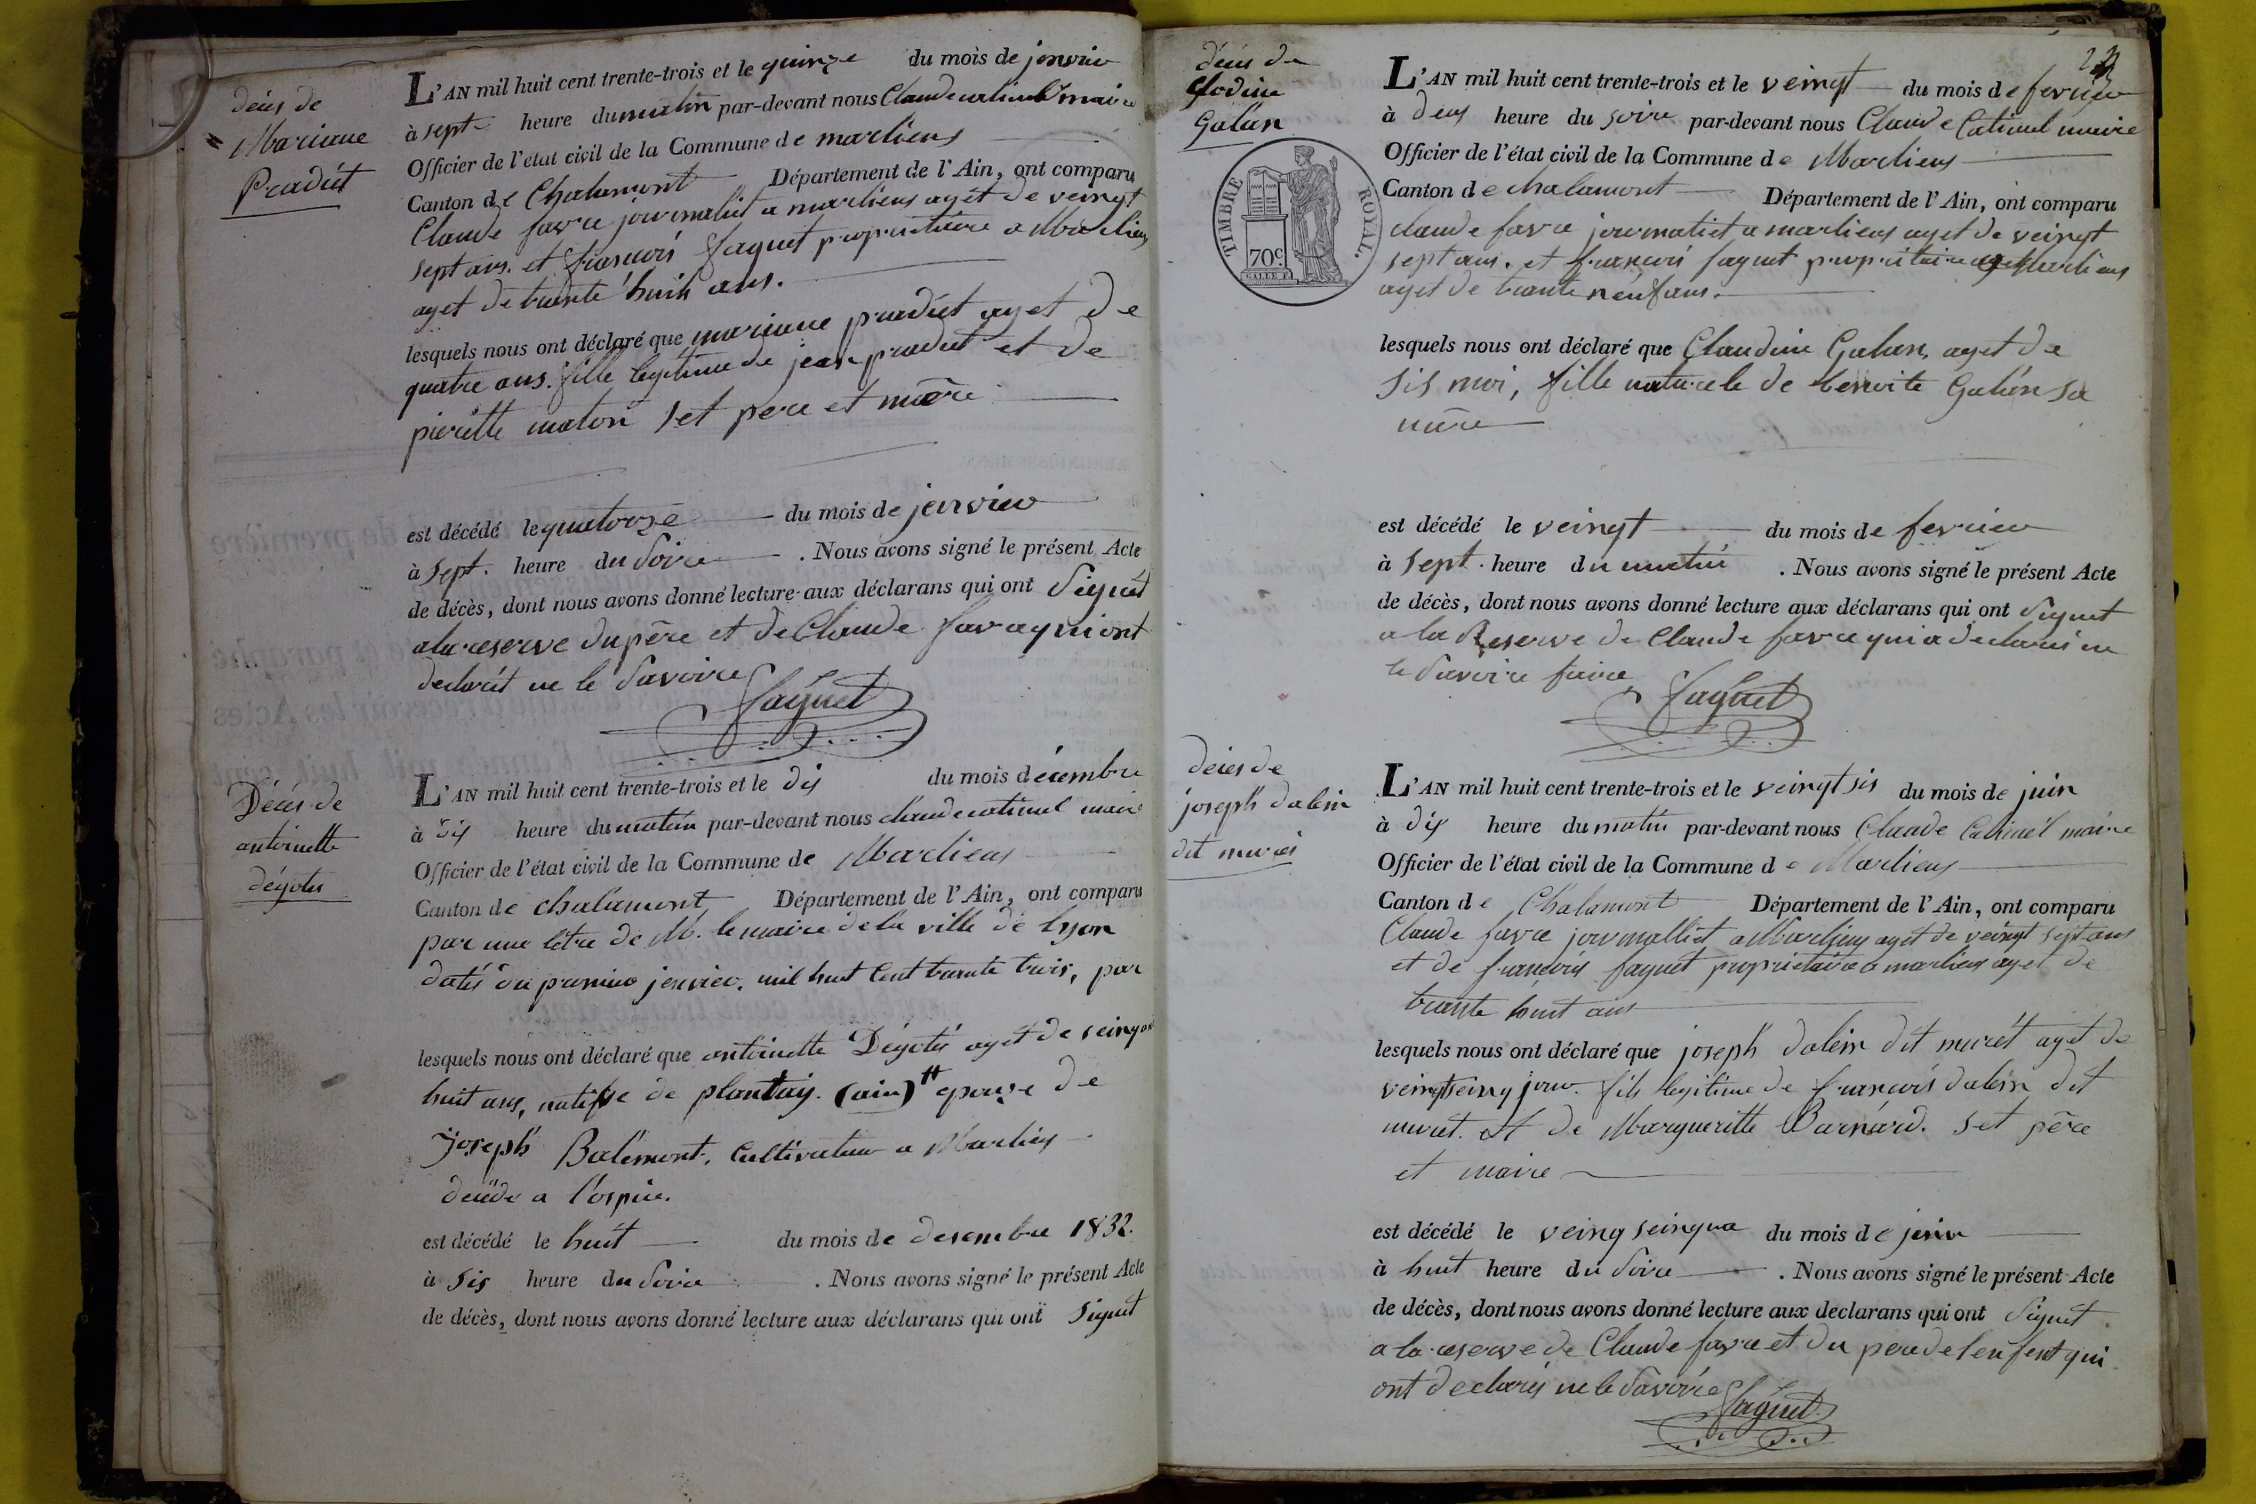 décès de
Mariane
Pradiet
L'AN mil huit cent trente-trois et le quinze du mois de jenvier
à sept heure du matin par-devant nous Claude maire
Officier de l'état civil de la Commune de marliens
Canton de Chalamont Département de l'Ain, ont comparu
Claude favre journaliet a marliens ayet de veingt
sept ans. et francois faguet proprietaire a Marliens
ayet de trante huit ans.
lesquels nous ont déclaré que mariane pradiet ayet de
quatre ans. fille legitime de jean pradiet et de
pierette maton set pere et mère
est décédé le quatorze du mois de jenvier
à sept. heure du Soire . Nous avons signé le présent Acte
de décès, dont nous avons donné lecture aux déclarans qui ont Signét
a la reserve du père et de Claude favre qui ont
declarét ne le Savoire
faguet
Décés de
antoinette
dégotes
L'AN mil huit cent trente-trois et le dis du mois décembre
à dis heure du matin par-devant nous claude maire
Officier de l'état civil de la Commune de Marliens
Canton de chalamont Département de l'Ain, ont comparu
par une létre de M. le maire de la ville de lyon
datés du premier jenvier. mil huit Cent trante trois, par
lesquels nous ont déclaré que antoinette Dégotés ayét de
huit ans, natifve de plantay. (ain) epouze de
Joseph Balémont, Cultivateur a Marliens
decede a l'ospice.
est décédé le huit du mois de desembre 1832.
à sis heure du Soire . Nous avons signé le présent Acte
de décès, dont nous avons donné lecture aux déclarans qui ont signet
23
décés de
Clodine
Galan
TIMBRE ROYAL.
70c.
L'AN mil huit cent trente-trois et le veingt du mois de fevrier
à deus heure du soire par-devant nous Claude maire
Officier de l'état civil de la Commune de Marliens
Canton de chalamont Département de l'Ain, ont comparu
claude favre journaliet a marliens ayet de veingt
sept ans. et francois faguet propritaire a Marliens
ayet de trante neuf ans.
lesquels nous ont déclaré que Claudine Galan, ayet de
sis moi, fille naturele de benoite Galan sa
mère
est décédé le veingt du mois de fevrier
à sept. heure du matin . Nous avons signé le présent Acte
de décès, dont nous avons donné lecture aux déclarans qui ont Signet
a la Reserve de Claude favre qui a declarés ne
le Savoire faire
faguet
décés de
joseph dalein
dit muret
L'AN mil huit cent trente-trois et le veingt sis du mois de juin
à dis heure du matin par-devant nous Claude maire
Officier de l'état civil de la Commune de Marliens
Canton de Chalamont Département de l'Ain, ont comparu
Claude favre journalliet a Marliens ayet de veingt sept ans
et de francois faguet proprietaire a marliens ayet de
trante huit ans
lesquels nous ont déclaré que joseph dalein dit murét ayet de
veingtseinq jour. fils legitime de francois dalein dit
muret. et de Margueritte Barnard. set père
et maire
est décédé le veing seinque du mois de juin
à huit heure du Soire . Nous avons signé le présent Acte
de décès, dont nous avons donné lecture aux declarans qui ont Signet
a la reserve de Claude favre et du pere de lenfent qui
ont declarés ne le Savoire
faguet